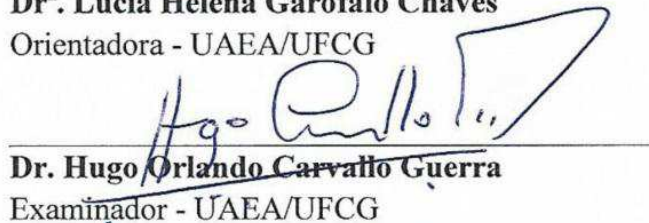 Drª. Lúcia Helena Garófalo Chaves
Orientadora - UAEA/UFCG
Hugo Carvallo
Dr. Hugo Orlando Carvallo Guerra
Examinador - UAEA/UFCG